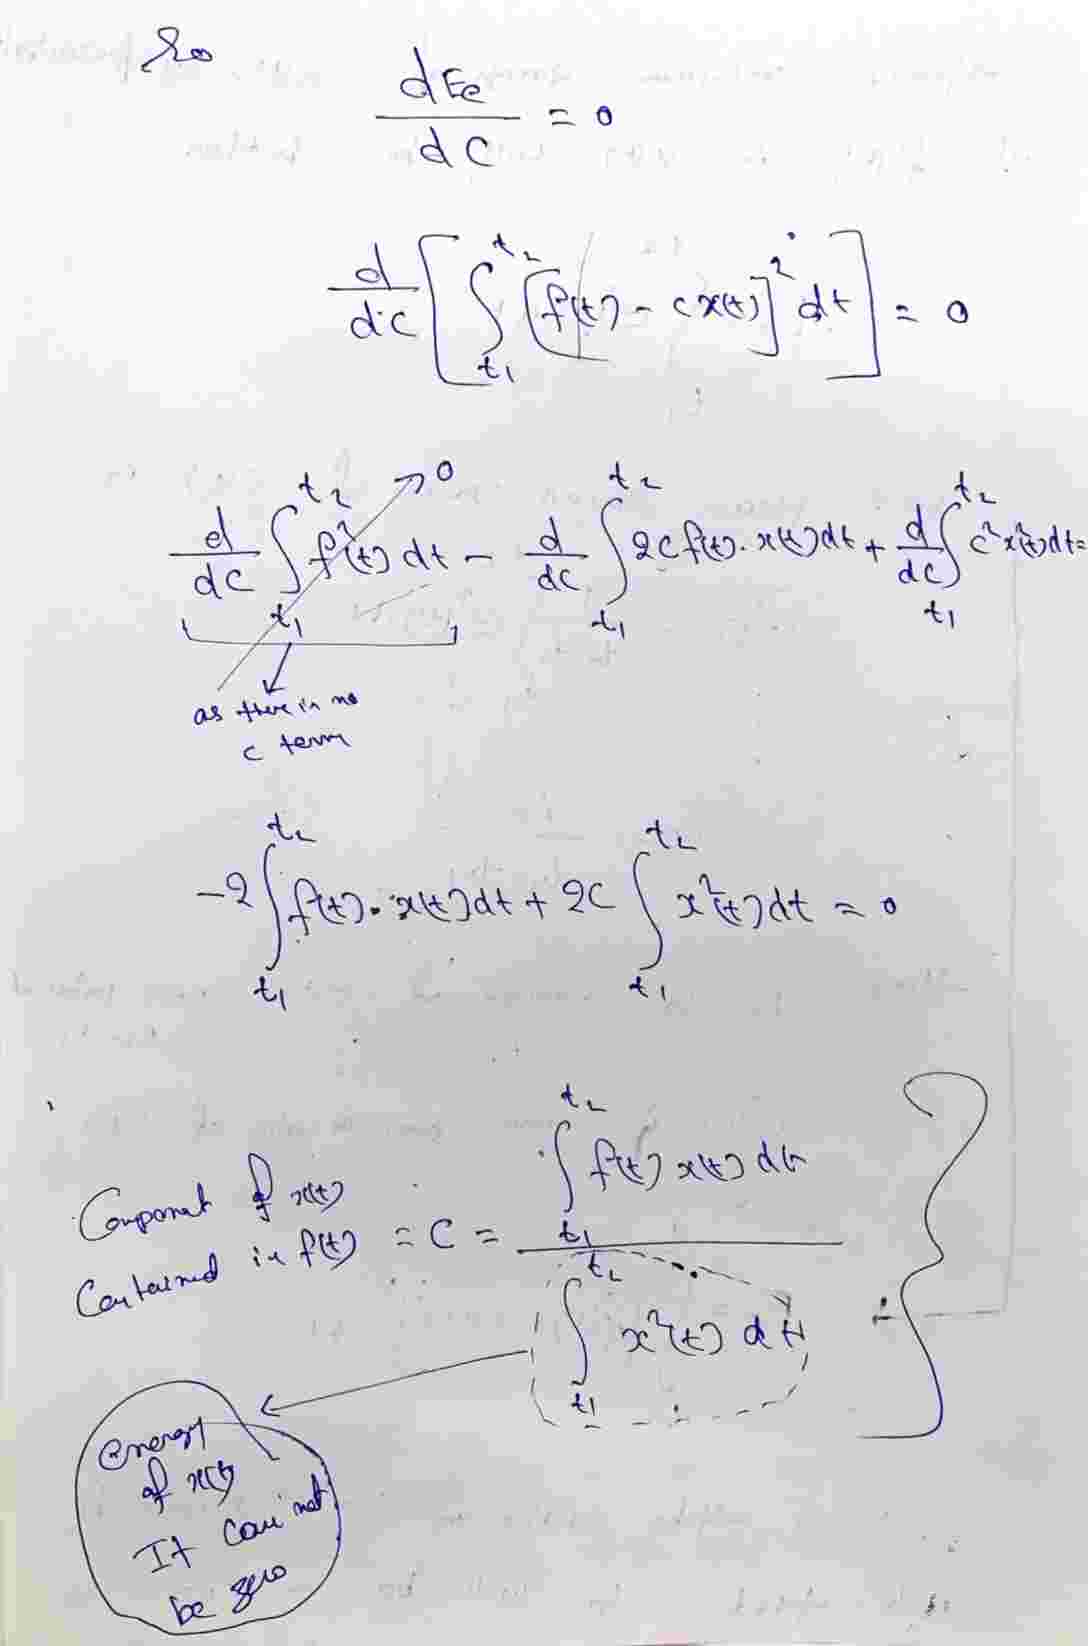 So
dEe/dC = 0
d/dC [ ∫_{t1}^{t2} [f(t) - cx(t)]² dt ] = 0
d/dC ∫_{t1}^{t2} f²(t) dt → 0 - d/dC ∫_{t1}^{t2} 2C f(t) . x(t) dt + d/dC ∫_{t1}^{t2} c² x²(t) dt =
as there is no
c term
-2 ∫_{t1}^{t2} f(t) . x(t) dt + 2C ∫_{t1}^{t2} x²(t) dt = 0
Component of x(t)
Contained in f(t) = C = ∫_{t1}^{t2} f(t) x(t) dt / ∫_{t1}^{t2} x²(t) dt
energy
of x(t)
It can not
be zero